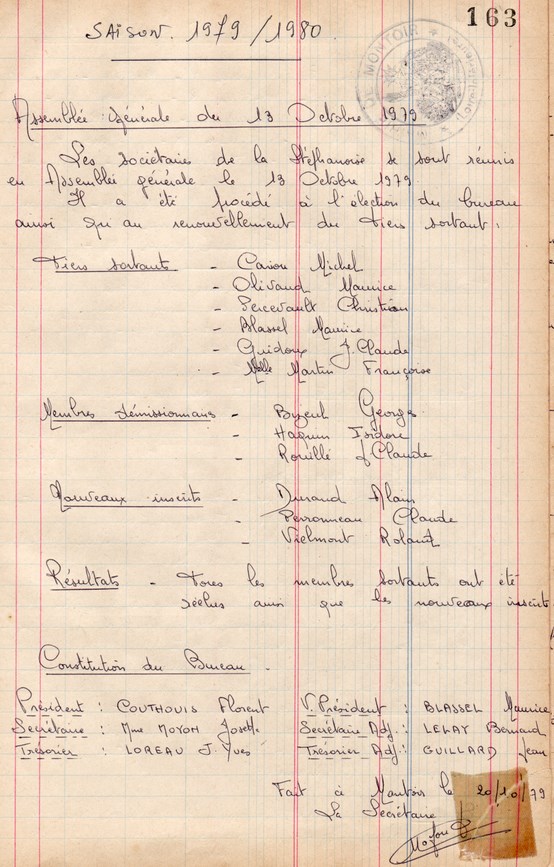 163
SAISON. 1979/1980.
MONTOIR
Assemblée générale du 13 Octobre 1979
Les sociétaires de la Stéphanoise se sont réunis
en Assemblée générale le 13 Octobre 1979
Il a été procédé à l'élection du bureau
ainsi qu'au renouvellement du tiers sortant.
Tiers sortants - Cariou Michel
- Olivaud Maurice
- Percevault Christian
- Blassel Maurice
- Guidoux J.Claude
- Melle Martin Françoise
Membres démissionnaires - Georges
- Isidore
- Rouillé J.Claude
Nouveaux inscrits - Durand Alain
- Perronneau Claude
- Vielmont Roland
Résultats - Tous les membres sortants ont été
réélus ainsi que les nouveaux inscrits
Constitution du Bureau.
Président : COUTHOUIS Florent V. Président : BLASSEL Maurice
Secrétaire : Mme MOYON Josette Secrétaire Adj. : LEHAY Bernard
Trésorier : LOREAU J. Yves Trésorier Adj. : GUILLARD Jean
Fait à Montoir le 20/10/79
La Secrétaire